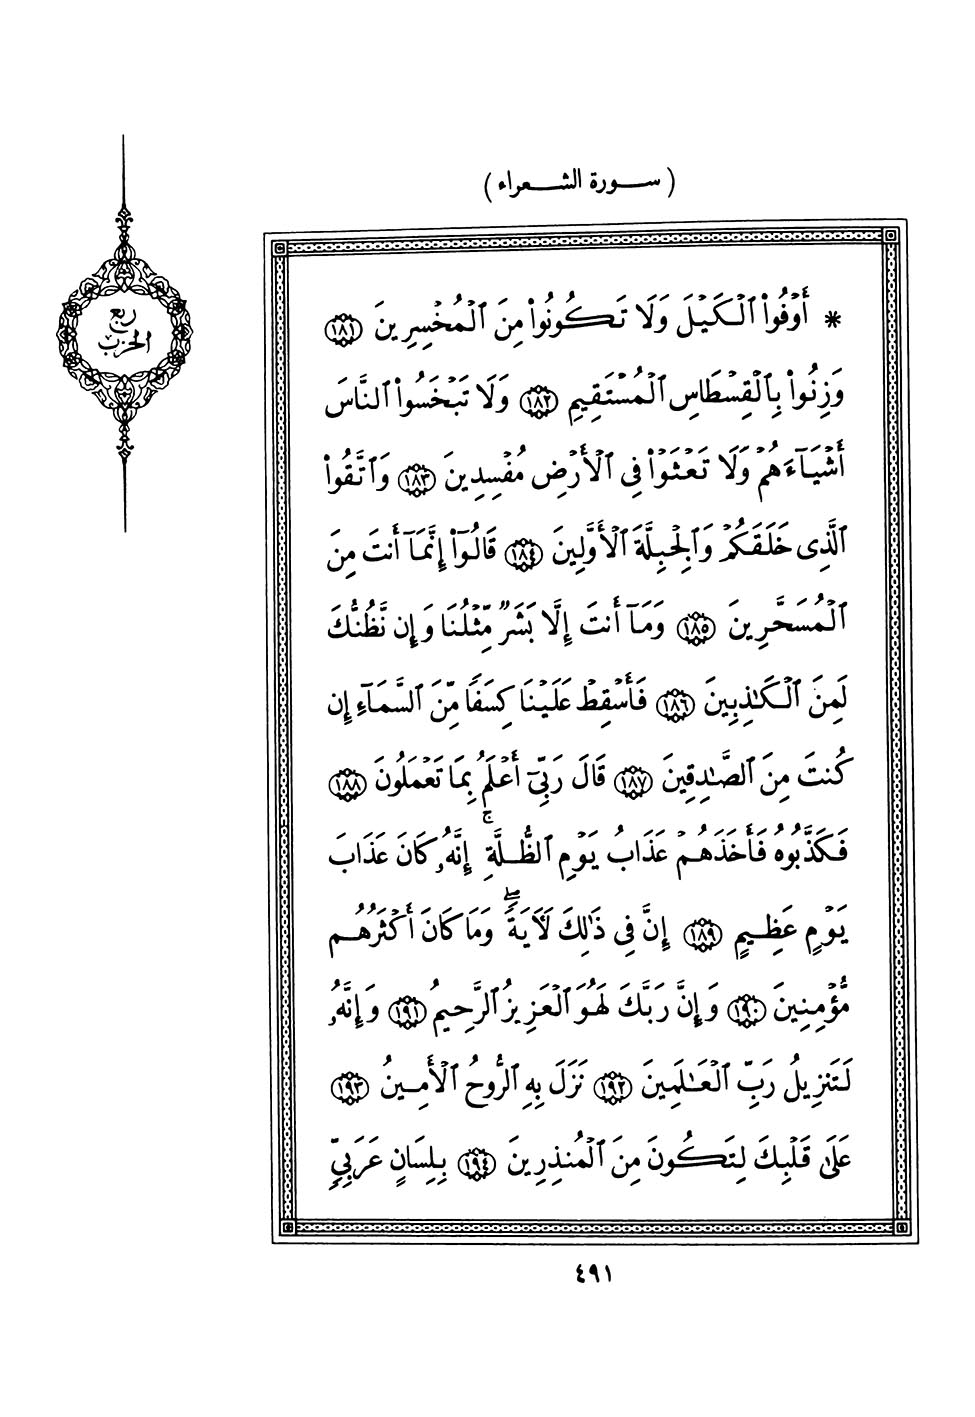 ( سورة الشعراء )
ربع
الحزب
* أَوْفُوا۟ ٱلْكَيْلَ وَلَا تَكُونُوا۟ مِنَ ٱلْمُخْسِرِينَ ١٨١
وَزِنُوا۟ بِٱلْقِسْطَاسِ ٱلْمُسْتَقِيمِ ١٨٢ وَلَا تَبْخَسُوا۟ ٱلنَّاسَ
أَشْيَآءَهُمْ وَلَا تَعْثَوْا۟ فِى ٱلْأَرْضِ مُفْسِدِينَ ١٨٣ وَٱتَّقُوا۟
ٱلَّذِى خَلَقَكُمْ وَٱلْجِبِلَّةَ ٱلْأَوَّلِينَ ١٨٤ قَالُوٓا۟ إِنَّمَآ أَنتَ مِنَ
ٱلْمُسَحَّرِينَ ١٨٥ وَمَآ أَنتَ إِلَّا بَشَرٌ مِّثْلُنَا وَإِن نَّظُنُّكَ
لَمِنَ ٱلْكَـٰذِبِينَ ١٨٦ فَأَسْقِطْ عَلَيْنَا كِسَفًا مِّنَ ٱلسَّمَآءِ إِن
كُنتَ مِنَ ٱلصَّـٰدِقِينَ ١٨٧ قَالَ رَبِّىٓ أَعْلَمُ بِمَا تَعْمَلُونَ ١٨٨
فَكَذَّبُوهُ فَأَخَذَهُمْ عَذَابُ يَوْمِ ٱلظُّلَّةِ ۚ إِنَّهُۥ كَانَ عَذَابَ
يَوْمٍ عَظِيمٍ ١٨٩ إِنَّ فِى ذَٰلِكَ لَـَٔايَةً ۖ وَمَا كَانَ أَكْثَرُهُم
مُّؤْمِنِينَ ١٩٠ وَإِنَّ رَبَّكَ لَهُوَ ٱلْعَزِيزُ ٱلرَّحِيمُ ١٩١ وَإِنَّهُۥ
لَتَنزِيلُ رَبِّ ٱلْعَـٰلَمِينَ ١٩٢ نَزَلَ بِهِ ٱلرُّوحُ ٱلْأَمِينُ ١٩٣
عَلَىٰ قَلْبِكَ لِتَكُونَ مِنَ ٱلْمُنذِرِينَ ١٩٤ بِلِسَانٍ عَرَبِىٍّ
٤٩١